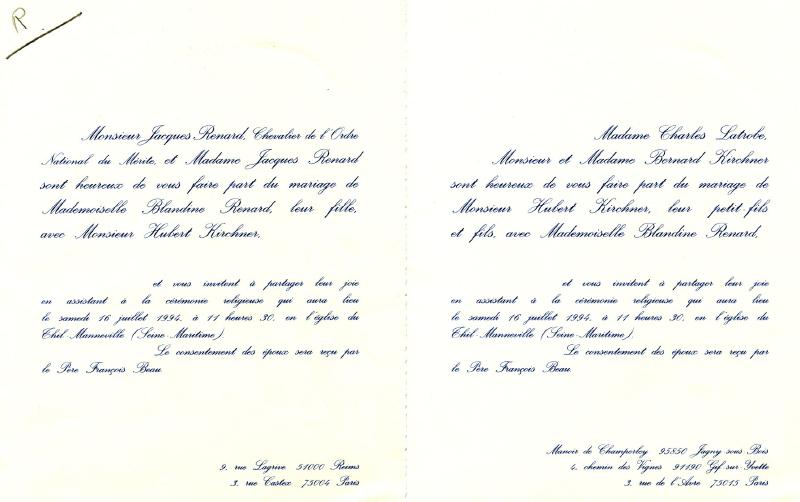 R
Monsieur Jacques Renard, Chevalier de l'Ordre
National du Mérite, et Madame Jacques Renard
sont heureux de vous faire part du mariage de
Mademoiselle Blandine Renard, leur fille,
avec Monsieur Hubert Kirchner,
et vous invitent à partager leur joie
en assistant à la cérémonie religieuse qui aura lieu
le samedi 16 juillet 1994, à 11 heures 30, en l'église du
Thil-Manneville (Seine-Maritime).
Le consentement des époux sera reçu par
le Père François Beau.
9, rue Lagrive 51000 Reims
3, rue Castex 75004 Paris
Madame Charles Latrobe,
Monsieur et Madame Bernard Kirchner
sont heureux de vous faire part du mariage de
Monsieur Hubert Kirchner, leur petit-fils
et fils, avec Mademoiselle Blandine Renard,
et vous invitent à partager leur joie
en assistant à la cérémonie religieuse qui aura lieu
le samedi 16 juillet 1994, à 11 heures 30, en l'église du
Thil-Manneville (Seine-Maritime).
Le consentement des époux sera reçu par
le Père François Beau.
Manoir de Champerloy 95850 Jagny sous Bois
4, chemin des Vignes 91190 Gif-sur-Yvette
3, rue de l'Avre 75015 Paris